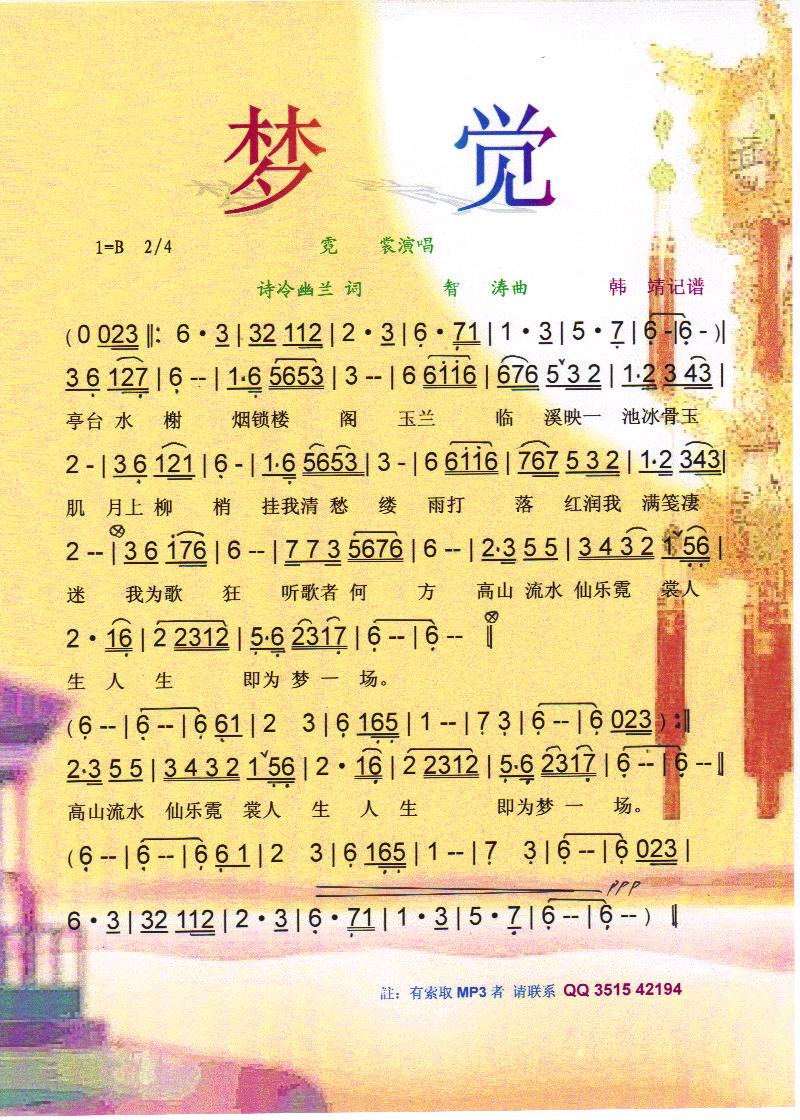 梦 觉
1=B 2/4 霓 裳演唱
诗冷幽兰 词 智 涛曲 韩 靖记谱
( 0 023 ‖: 6 · 3 | 32 112 | 2 · 3 | 6 · 71 | 1 · 3 | 5 · 7 | 6 -| 6 - ) |
3 6 127 | 6 -- | 1·6 5653 | 3 -- | 6 6116 | 676 5 3 2 | 1·2 3 43 |
亭台 水 榭 烟锁楼 阁 玉兰 临 溪映一 池冰骨玉
2 - | 3 6 121 | 6 - | 1·6 5653 | 3 - | 6 6116 | 767 532 | 1·2 343 |
肌 月上 柳 梢 挂我清 愁 缕 雨打 落 红润我 满笺凄
2 -- | 3 6 176 | 6 -- | 7 7 3 5676 | 6 -- | 2·3 5 5 | 3 4 3 2 1 56 |
迷 我为歌 狂 听歌者 何 方 高山 流水 仙乐霓 裳人
2 · 16 | 2 2312 | 5·6 2317 | 6 -- | 6 -- ‖
生 人 生 即为 梦 一 场。
( 6 -- | 6 -- | 6 61 | 2 3 | 6 165 | 1 -- | 7 3 | 6 -- | 6 023 ) :‖
2·3 5 5 | 3 4 3 2 1 56 | 2 · 16 | 2 2312 | 5·6 2317 | 6 -- | 6 -- ‖
高山流水 仙乐霓 裳人 生 人 生 即为梦 一 场。
( 6 -- | 6 -- | 6 6 1 | 2 3 | 6 165 | 1 -- | 7 3 | 6 -- | 6 023 |
ppp
6 · 3 | 32 112 | 2 · 3 | 6 · 71 | 1 · 3 | 5 · 7 | 6 -- | 6 -- ) ‖
註：有索取 MP3 者 请联系 QQ 3515 42194